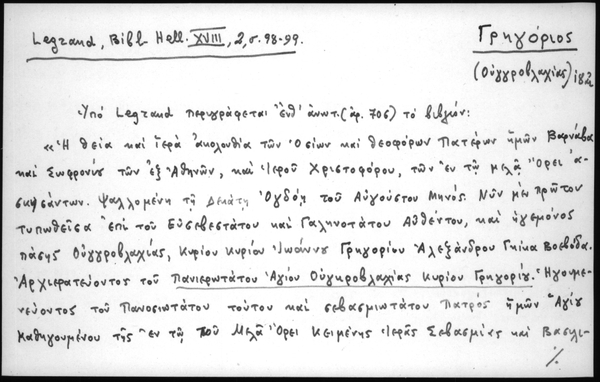 Legrand, Bibl. Hell. XVIII, 2, σ. 98-99.
Γρηγόριος
(Οὑγγροβλαχίας)
Ὑπὸ Legrand περιγράφεται ἔνθ' ἀνωτ. (ἀρ. 706) τὸ βιβλίον:
«Ἡ θεία καὶ ἱερὰ ἀκολουθία τῶν Ὁσίων καὶ θεοφόρων Πατέρων ἡμῶν Βαρνάβα
καὶ Σωφρονίου τῶν ἐξ Ἀθηνῶν, καὶ Ἱεροῦ Χριστοφόρου, τῶν ἐν τῷ μελᾷ Ὄρει ἀ-
σκησάντων. Ψαλλομένη τῇ Δεκάτῃ Ὀγδόῃ τοῦ Αὐγούστου Μηνός. Νῦν μὲν πρῶτον
τυπωθεῖσα ἐπὶ τοῦ Εὐσεβεστάτου καὶ Γαληνοτάτου Αὐθέντου, καὶ ἡγεμόνος
πάσης Οὑγγροβλαχίας, Κυρίου Κυρίου Ἰωάννου Γρηγορίου Ἀλεξάνδρου Γκίκα Βοεβόδα.
Ἀρχιερατεύοντος τοῦ Πανιερωτάτου Ἁγίου Οὑγκροβλαχίας Κυρίου Γρηγορίου. Ἡγουμε-
νεύοντος τοῦ Πανοσιωτάτου τούτου καὶ σεβασμιωτάτου Πατρὸς ἡμῶν Ἁγίου
Καθηγουμένου τῆς ἐν τῷ τοῦ Μελᾶ Ὄρει Κειμένης Ἱερᾶς Σεβασμίας καὶ Βασιλι-
./.